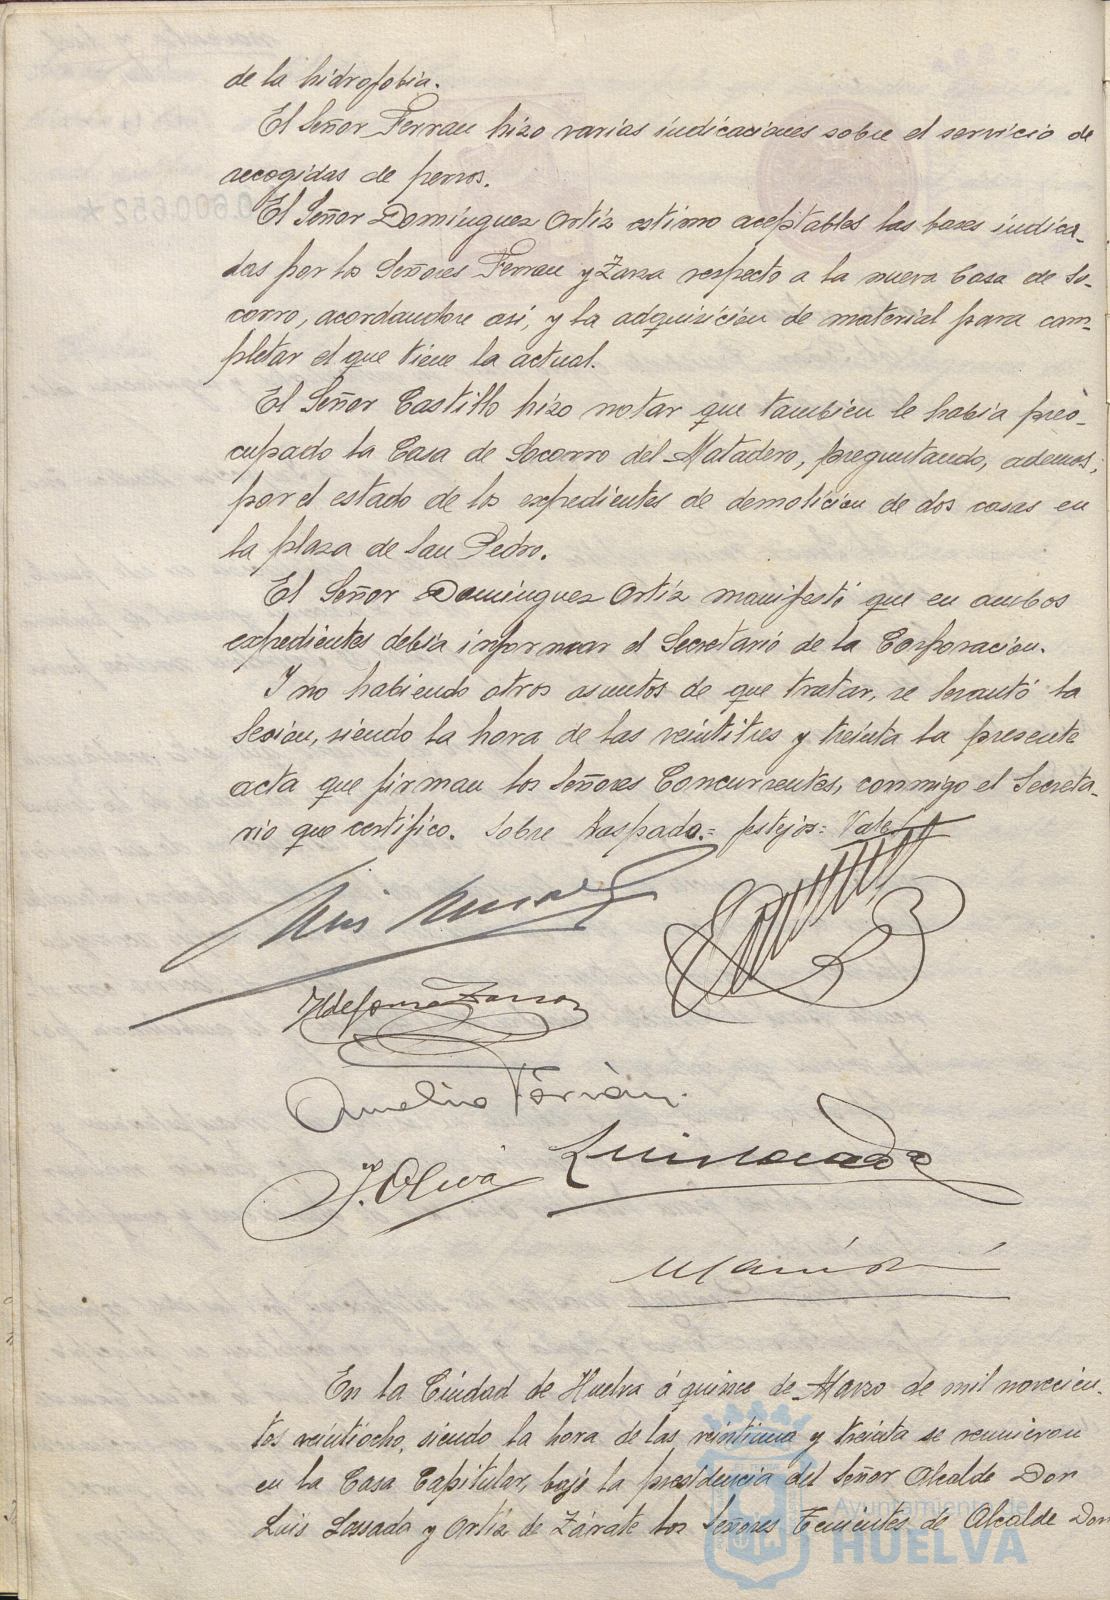 de la hidrofobia.
El Señor Ferrau hizo varias indicaciones sobre el servicio de
recogidas de perros.
El Señor Domínguez Ortíz estimo aceptables las bases indica-
das por los Señores Ferrau y Zarza respecto a la nueva Casa de So-
corro, acordandose asi, y la adquisición de material para com-
pletar el que tiene la actual.
El Señor Castillo hizo notar que tambien le había preo-
cupado la Casa de Socorro del Matadero, preguntando, ademas,
por el estado de los expedientes de demolición de dos casas en
la plaza de San Pedro.
El Señor Domínguez Ortíz manifestó que en ambos
expedientes debía informar el Secretario de la Corporación.
Y no habiendo otros asuntos de que tratar, se levantó la
Sesión, siendo la hora de las veintitres y treinta la presente
acta que firman los Señores Concurrentes, conmigo el Secreta-
rio que certifico. Sobre Raspado.= festejos= Vale
Ildefonso Zarza
Aurelio Ferrán.
J. Oliva
En la Ciudad de Huelva á quince de Marzo de mil novecien-
tos veintiocho, siendo la hora de las veintiuna y treinta se reunieron
en la Casa Capitular, bajo la presidencia del Señor Alcalde Don
Luis Lossada y Ortíz de Zárate los Señores Tenientes de Alcalde Don
Ayuntamiento de
HUELVA